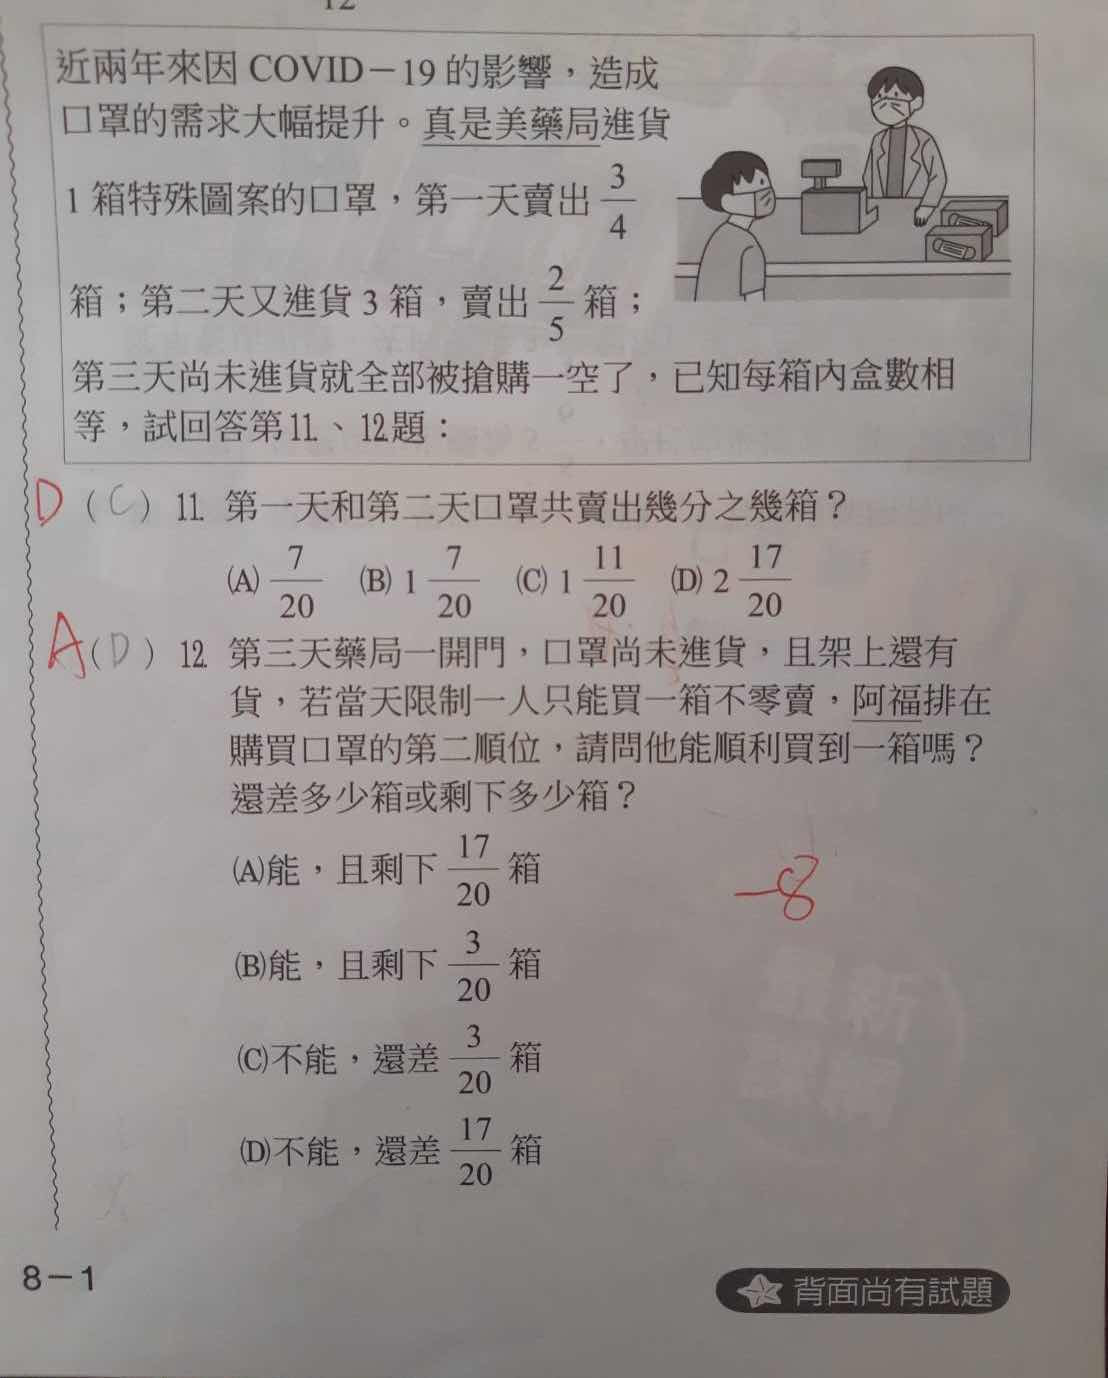 12
近兩年來因 COVID－19 的影響，造成
口罩的需求大幅提升。真是美藥局進貨
1 箱特殊圖案的口罩，第一天賣出 3/4
箱；第二天又進貨 3 箱，賣出 2/5 箱；
第三天尚未進貨就全部被搶購一空了，已知每箱內盒數相
等，試回答第11、12題：
D (C) 11. 第一天和第二天口罩共賣出幾分之幾箱？
(A) 7/20 (B) 1 7/20 (C) 1 11/20 (D) 2 17/20
A (D) 12. 第三天藥局一開門，口罩尚未進貨，且架上還有
貨，若當天限制一人只能買一箱不零賣，阿福排在
購買口罩的第二順位，請問他能順利買到一箱嗎？
還差多少箱或剩下多少箱？
(A)能，且剩下 17/20 箱
-8
(B)能，且剩下 3/20 箱
(C)不能，還差 3/20 箱
(D)不能，還差 17/20 箱
8－1
背面尚有試題